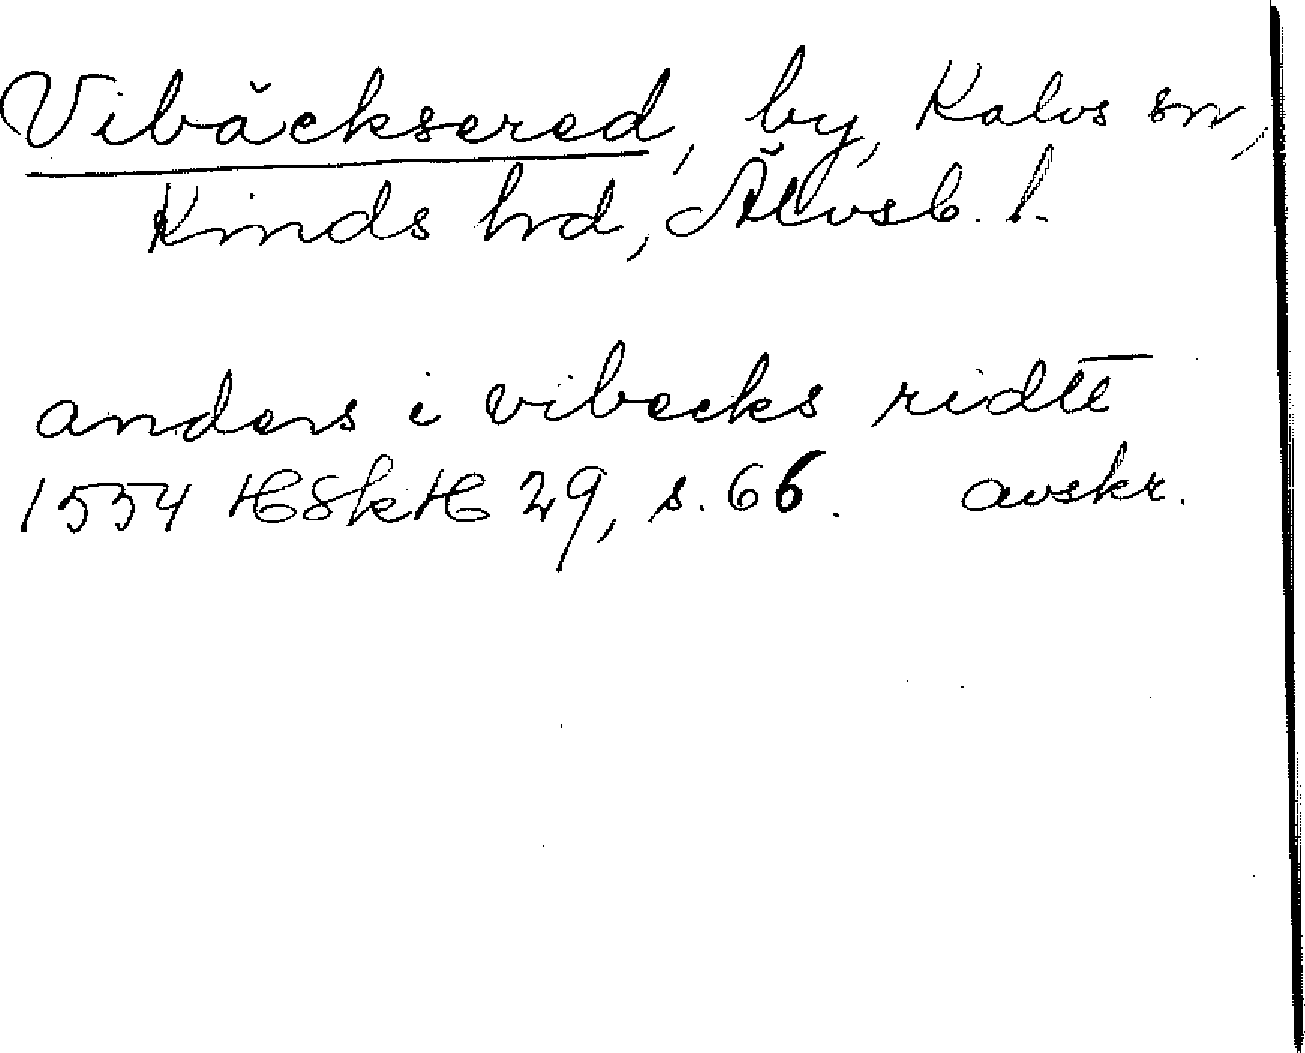 Vibäcksered, by, Kalvs sn,
Kinds hd, Älvsb. l.
anders i vibecks ridte̅
1554 HSkH 29, s. 66. avskr.